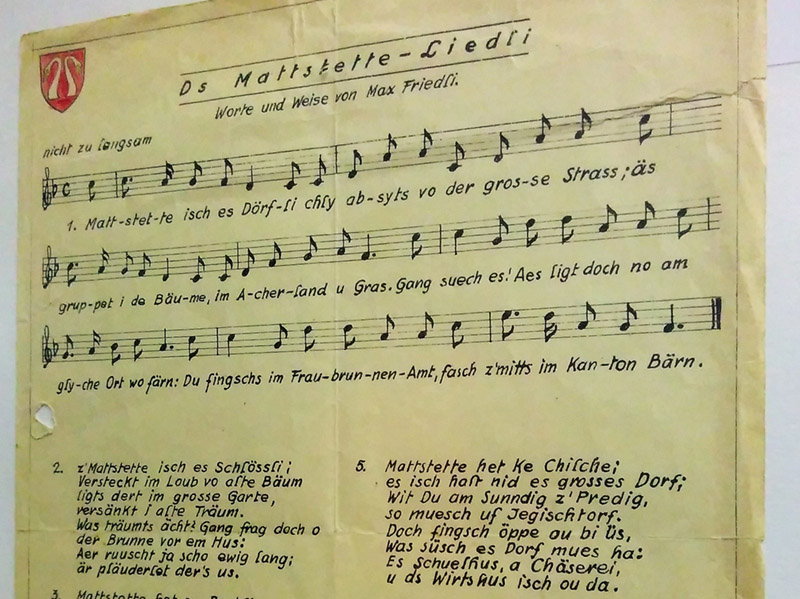 Ds Mattstette-Liedli
Worte und Weise von Max Friedli.
nicht zu langsam
1. Matt-stet-te isch es Dörf-li chly ab-syts vo der gros-se Strass; äs
grup-pet i de Bäu-me, im A-cher-land u Gras. Gang suech es! Aes ligt doch no am
gly-che Ort wo färn: Du fingschs im Frau-brun-nen-Amt, fasch z'mitts im Kan-ton Bärn.
2. z'Mattstette isch es Schlössli;
Versteckt im Loub vo alte Bäum
ligts dert im grosse Garte,
versänkt i alte Träum.
Was träumts ächt? Gang frag doch o
der Brunne vor em Hus:
Aer ruuscht ja scho ewig lang;
är pläuderlet der's us.
3. Mattstette het
5. Mattstette het ke Chilche;
es isch halt nid es grosses Dorf;
Wit Du am Sunndig z'Predig,
so muesch uf Jegischtorf.
Doch fingsch öppe au bi üs,
Was süsch es Dorf mues ha:
Es Schuelhus, a Chäserei,
u ds Wirtshus isch ou da.